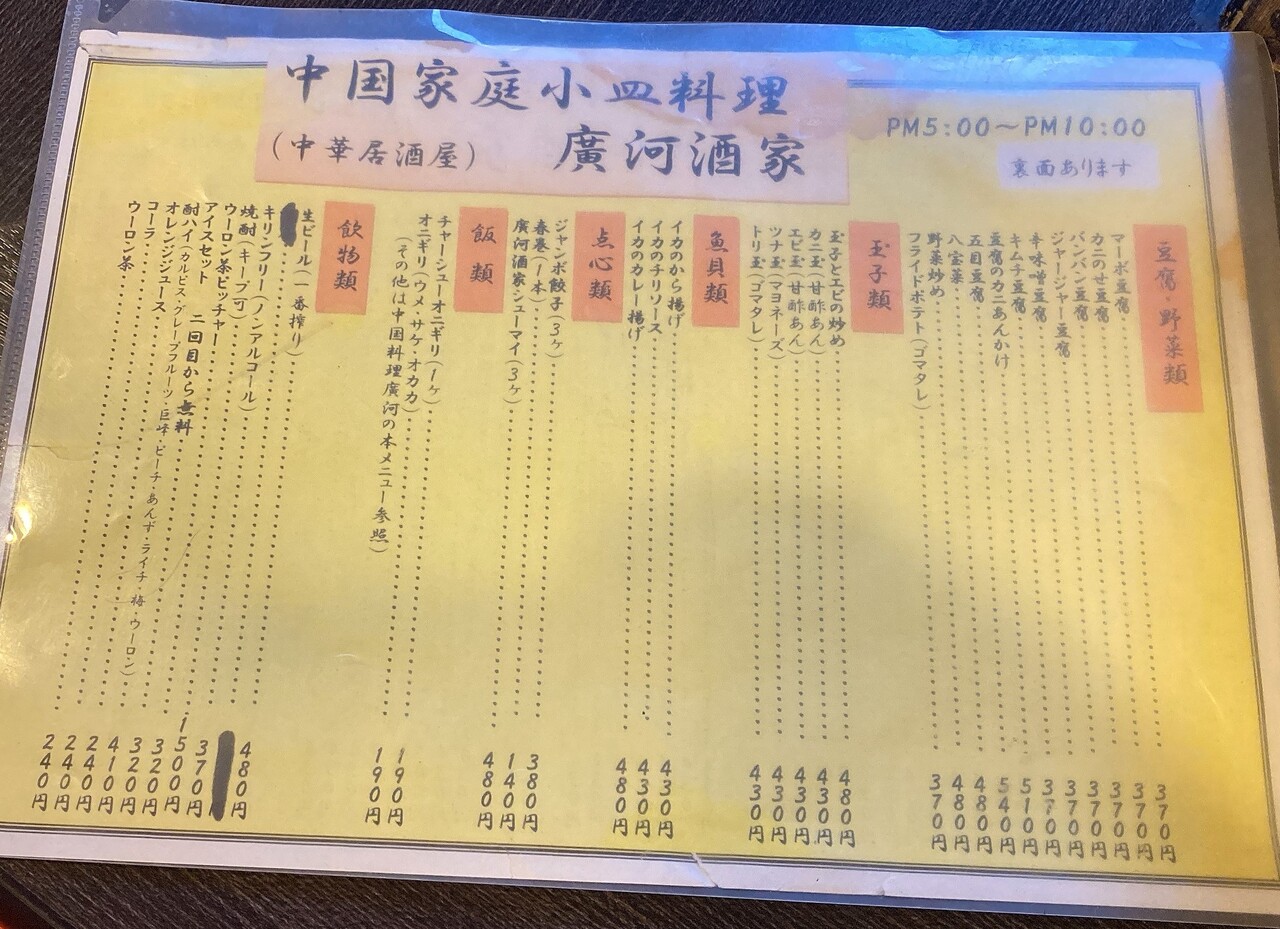 中国家庭小皿料理
(中華居酒屋) 廣河酒家
PM5:00～PM10:00
裏面あります
豆腐・野菜類
マーボ豆腐 370円
カニのせ豆腐 370円
バンバン豆腐 370円
ジャージャー豆腐 370円
辛味噌豆腐 370円
キムチ豆腐 370円
豆腐のカニあんかけ 510円
五目豆腐 540円
八宝菜 480円
野菜炒め 480円
フライドポテト(ゴマタレ) 370円
玉子類
玉子とエビの炒め 480円
カニ玉(甘酢あん) 430円
エビ玉(甘酢あん) 430円
ツナ玉(マヨネーズ) 430円
トリ玉(ゴマタレ) 430円
魚貝類
イカのから揚げ 430円
イカのチリソース 430円
イカのカレー揚げ 480円
点心類
ジャンボ餃子(3ヶ) 380円
春巻(1本) 140円
廣河酒家シューマイ(3ヶ) 480円
飯類
チャーシューオニギリ(1ヶ) 190円
オニギリ(ウメ・サケ・オカカ) 190円
(その他は中国料理廣河の本メニュー参照)
飲物類
生ビール(一番搾り) 480円
キリンフリー(ノンアルコール) 370円
焼酎(キープ可) 1500円
ウーロン茶ピッチャー 320円
アイスセット 二回目から無料 320円
酎ハイ(カルピス・グレープフルーツ・巨峰・ピーチ・あんず・ライチ・梅・ウーロン) 410円
オレンジジュース 240円
コーラ 240円
ウーロン茶 240円